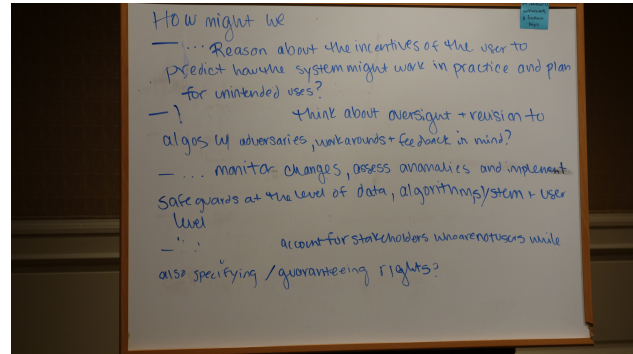 How might we
— ... Reason about the incentives of the user to
predict how the system might work in practice and plan
for unintended uses?
— think about oversight + revision to
algos w/ adversaries, workarounds + feedback in mind?
— ... monitor changes, assess anamalies and implement
safeguards at the level of data, algorithm, system + user
level
— account for stakeholders who are not users while
also specifying / guaranteeing rights?